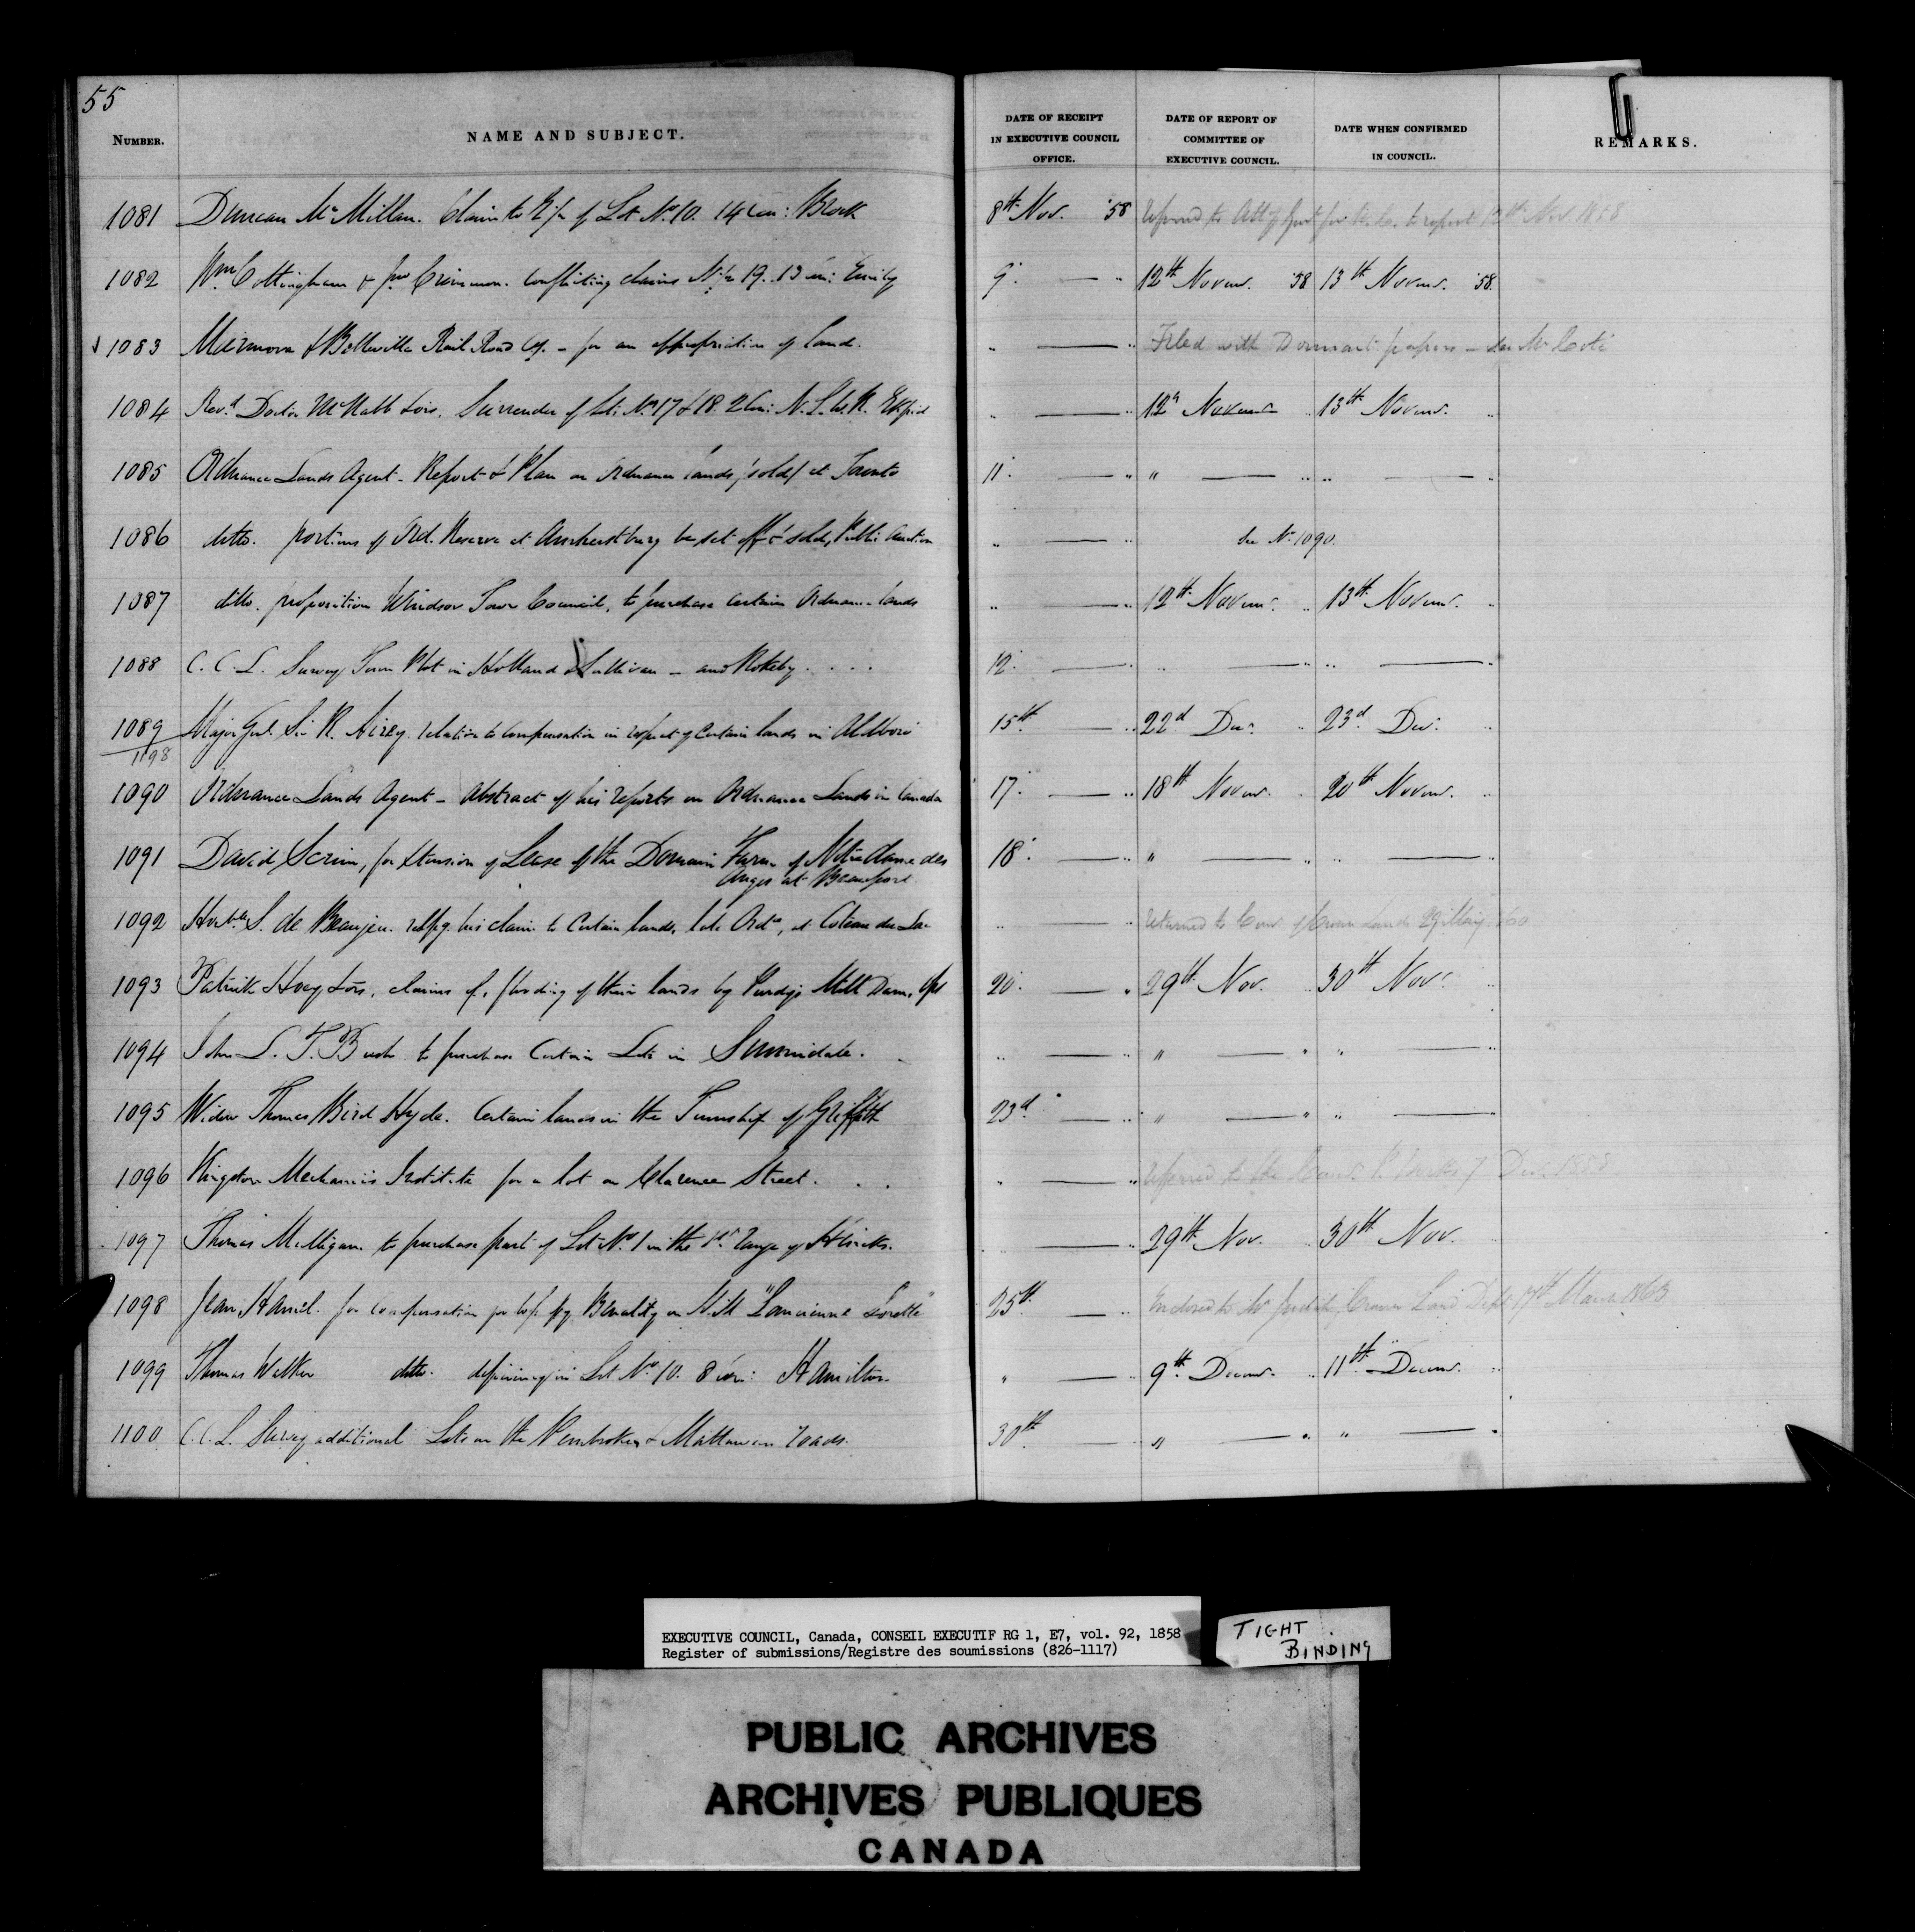 55
NUMBER. NAME AND SUBJECT. DATE OF RECEIPT IN EXECUTIVE COUNCIL OFFICE. DATE OF REPORT OF COMMITTEE OF EXECUTIVE COUNCIL. DATE WHEN CONFIRMED IN COUNCIL. REMARKS.
1081 Duncan McMillan. Claim to of Lot No 10. 14 Con: Brock 8th Nov. '58 to report 12th Nov 1858
1082 Wm Cottingham & conflicting claims N½ 19. 13 Con: Emily 9 — " 12th Novemr. 58 13th Novemr. '58.
1083 & Belleville Rail Road Coy. - for an appropriation of land. " — " Filed with Dormant papers - See Mr Coté
1084 Revd. Doctor McNabb Surrender of Lots No 17 & 18. 2 Con: " — " 12th Novemr " 13th Novemr. "
1085 Ordnance Lands Agent - Report & Plan on Ordnance lands (sold) at Toronto 11. — " " — " " — "
1086 ditto. portions of Ord. Reserve at Amherstburg be set off & sold, Public Auction " — " See No 1090.
1087 ditto. proposition Windsor Town Council, to purchase certain Ordnance lands " — " 12th Novemr. " 13th Novemr. "
1088 C. C. L. Survey Town Plot in Holland & Sullivan - and Rokeby. . . . 12. — " " — " " — "
1089 Major Genl. Sir R. Airey. relation to compensation in respect of certain lands in Aldboro 15th — " 22d Decr. " 23d Decr. "
1198
1090 Ordnance Lands Agent - Abstract of his reports on Ordnance Lands in Canada 17. — " 18th Novemr. " 20th Novemr. "
1091 David Scrim, for Extension of Lease of the Domain Farm of Notre Dame des 18. — " " — " " — "
Anges at Beauport
1092 Honble. S. de Beaujeu. respg. his claim to certain lands, late Ordce, at Coteau du Lac " — " returned to Comr of Crown Lands
1093 Patrick Hoey & ors, claims of, flooding of their lands by Purdy's Mill Dam, Ops 20. — " 29th Nov. " 30th Novr. "
1094 John L. T. Bush to purchase Certain Lots in Sunnidale. " — " " — " " — "
1095 Widow Thomas Bird Hyde. Certain lands in the Township of Griffith 23d. — " " — " " — "
1096 Kingston Mechanics Institute for a lot on Clarence Street. . . " — " referred to the 7 Decr. 1858
1097 Thomas Milligan to purchase part of Lot No 1 in the 1st range of Hincks. " — " 29th Nov. " 30th Nov.
1098 Jean Hamel. for compensation for loss by Banality on Mill "L'ancienne Lorette" 25th — " Enclosed to Mr Crown Land Dept. 17th March 1863
1099 Thomas Walker ditto. deficiency in Lot No 10. 8 Con: Hamilton " — " 9th Decemr. " 11th Decemr. "
1100 C. C. L. Survey additional Lots on the Pembroke & Mattawan roads. 30th — " " — " " — "
EXECUTIVE COUNCIL, Canada, CONSEIL EXECUTIF RG 1, E7, vol. 92, 1858
Register of submissions/Registre des soumissions (826-1117)
TIGHT
BINDING
PUBLIC ARCHIVES
ARCHIVES PUBLIQUES
CANADA